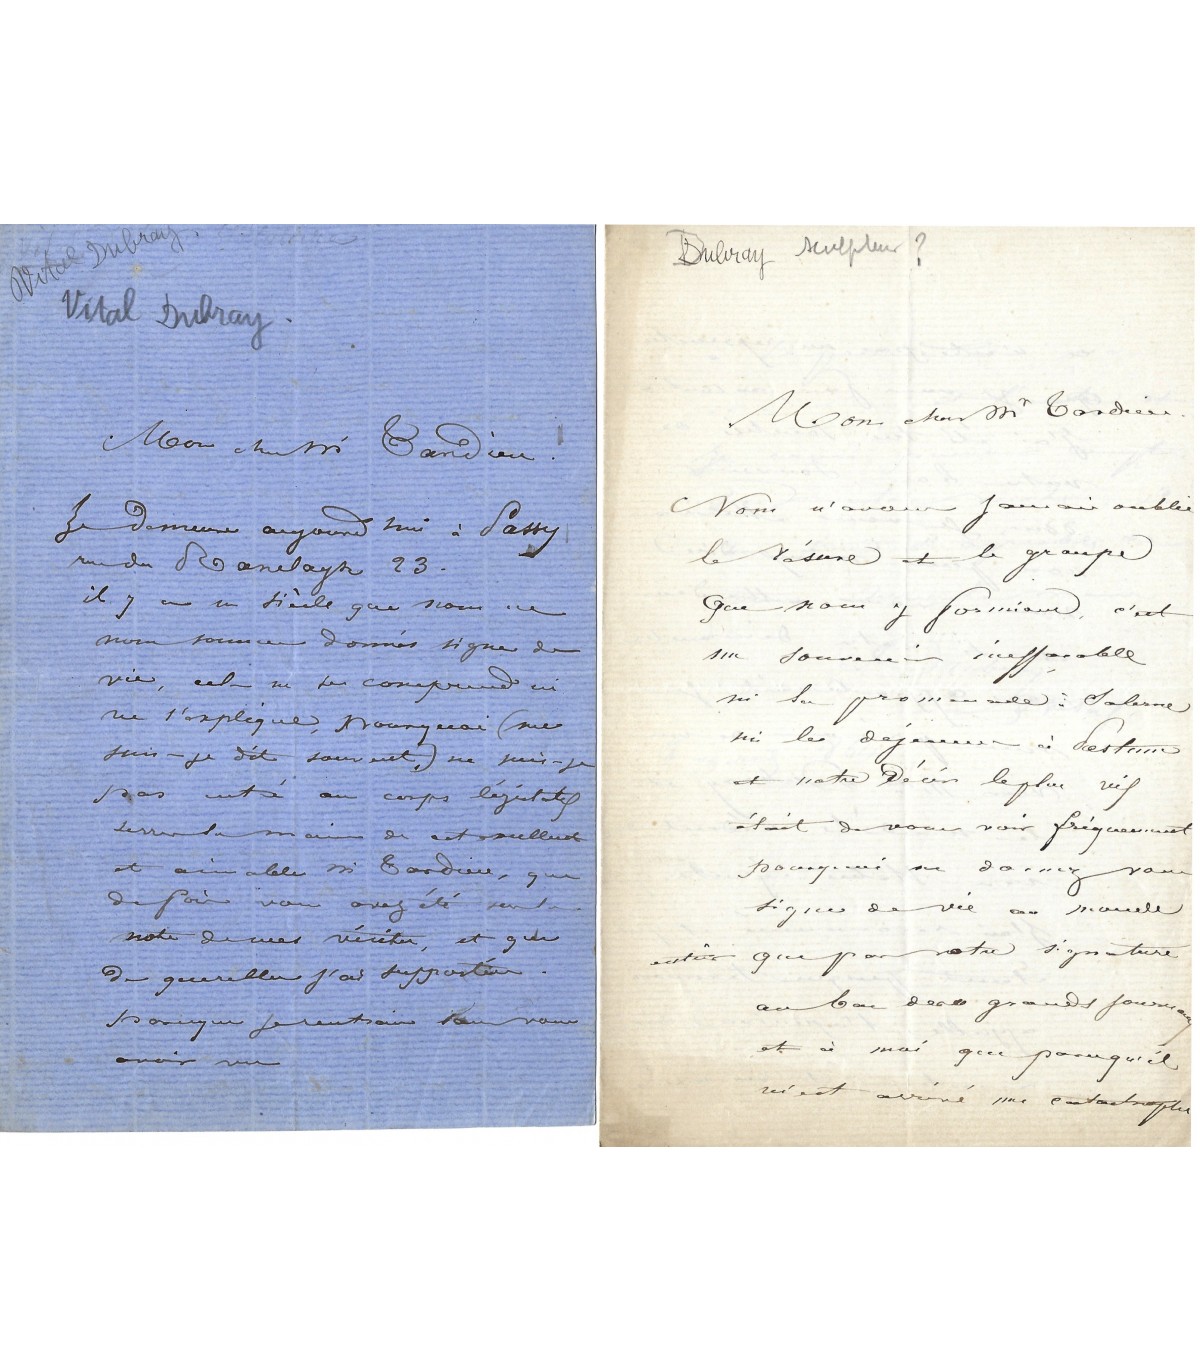 Vital Dubray.
Vital Dubray.
Mon cher Mr Tardieu.
Je Demeure aujourd'hui à Passy
rue du Ranelagh 23.
il y a un siècle que nous ne
nous sommes donnés signe de
vie, cela ne se comprend ni
ne s'explique, pourquoi (me
suis-je dit souvent,) ne suis-je
pas entré au corps législatif
serrer la main de cet excellent
et aimable Mr Tardieu, que
de fois vous avez été sur la
note de mes visites, et que
de querelles j'ai supportées
parceque je rentrais sans vous
avoir vu
Dubray sculpteur ?
Mon cher Mr Tardieu.
Nous n'avons jamais oublié
le Vésuve et le groupe
que nous y formions, c'est
un souvenir ineffaçable
ni la promenade à Salerne
ni le déjeuner à Pestum
et notre Désir le plus vif
était de vous voir fréquemment
pourquoi ne donnez vous
signe de vie au monde
que par votre signature
au bas des grands journaux
et à moi que parcequ'il
m'est arrivé une catastrophe